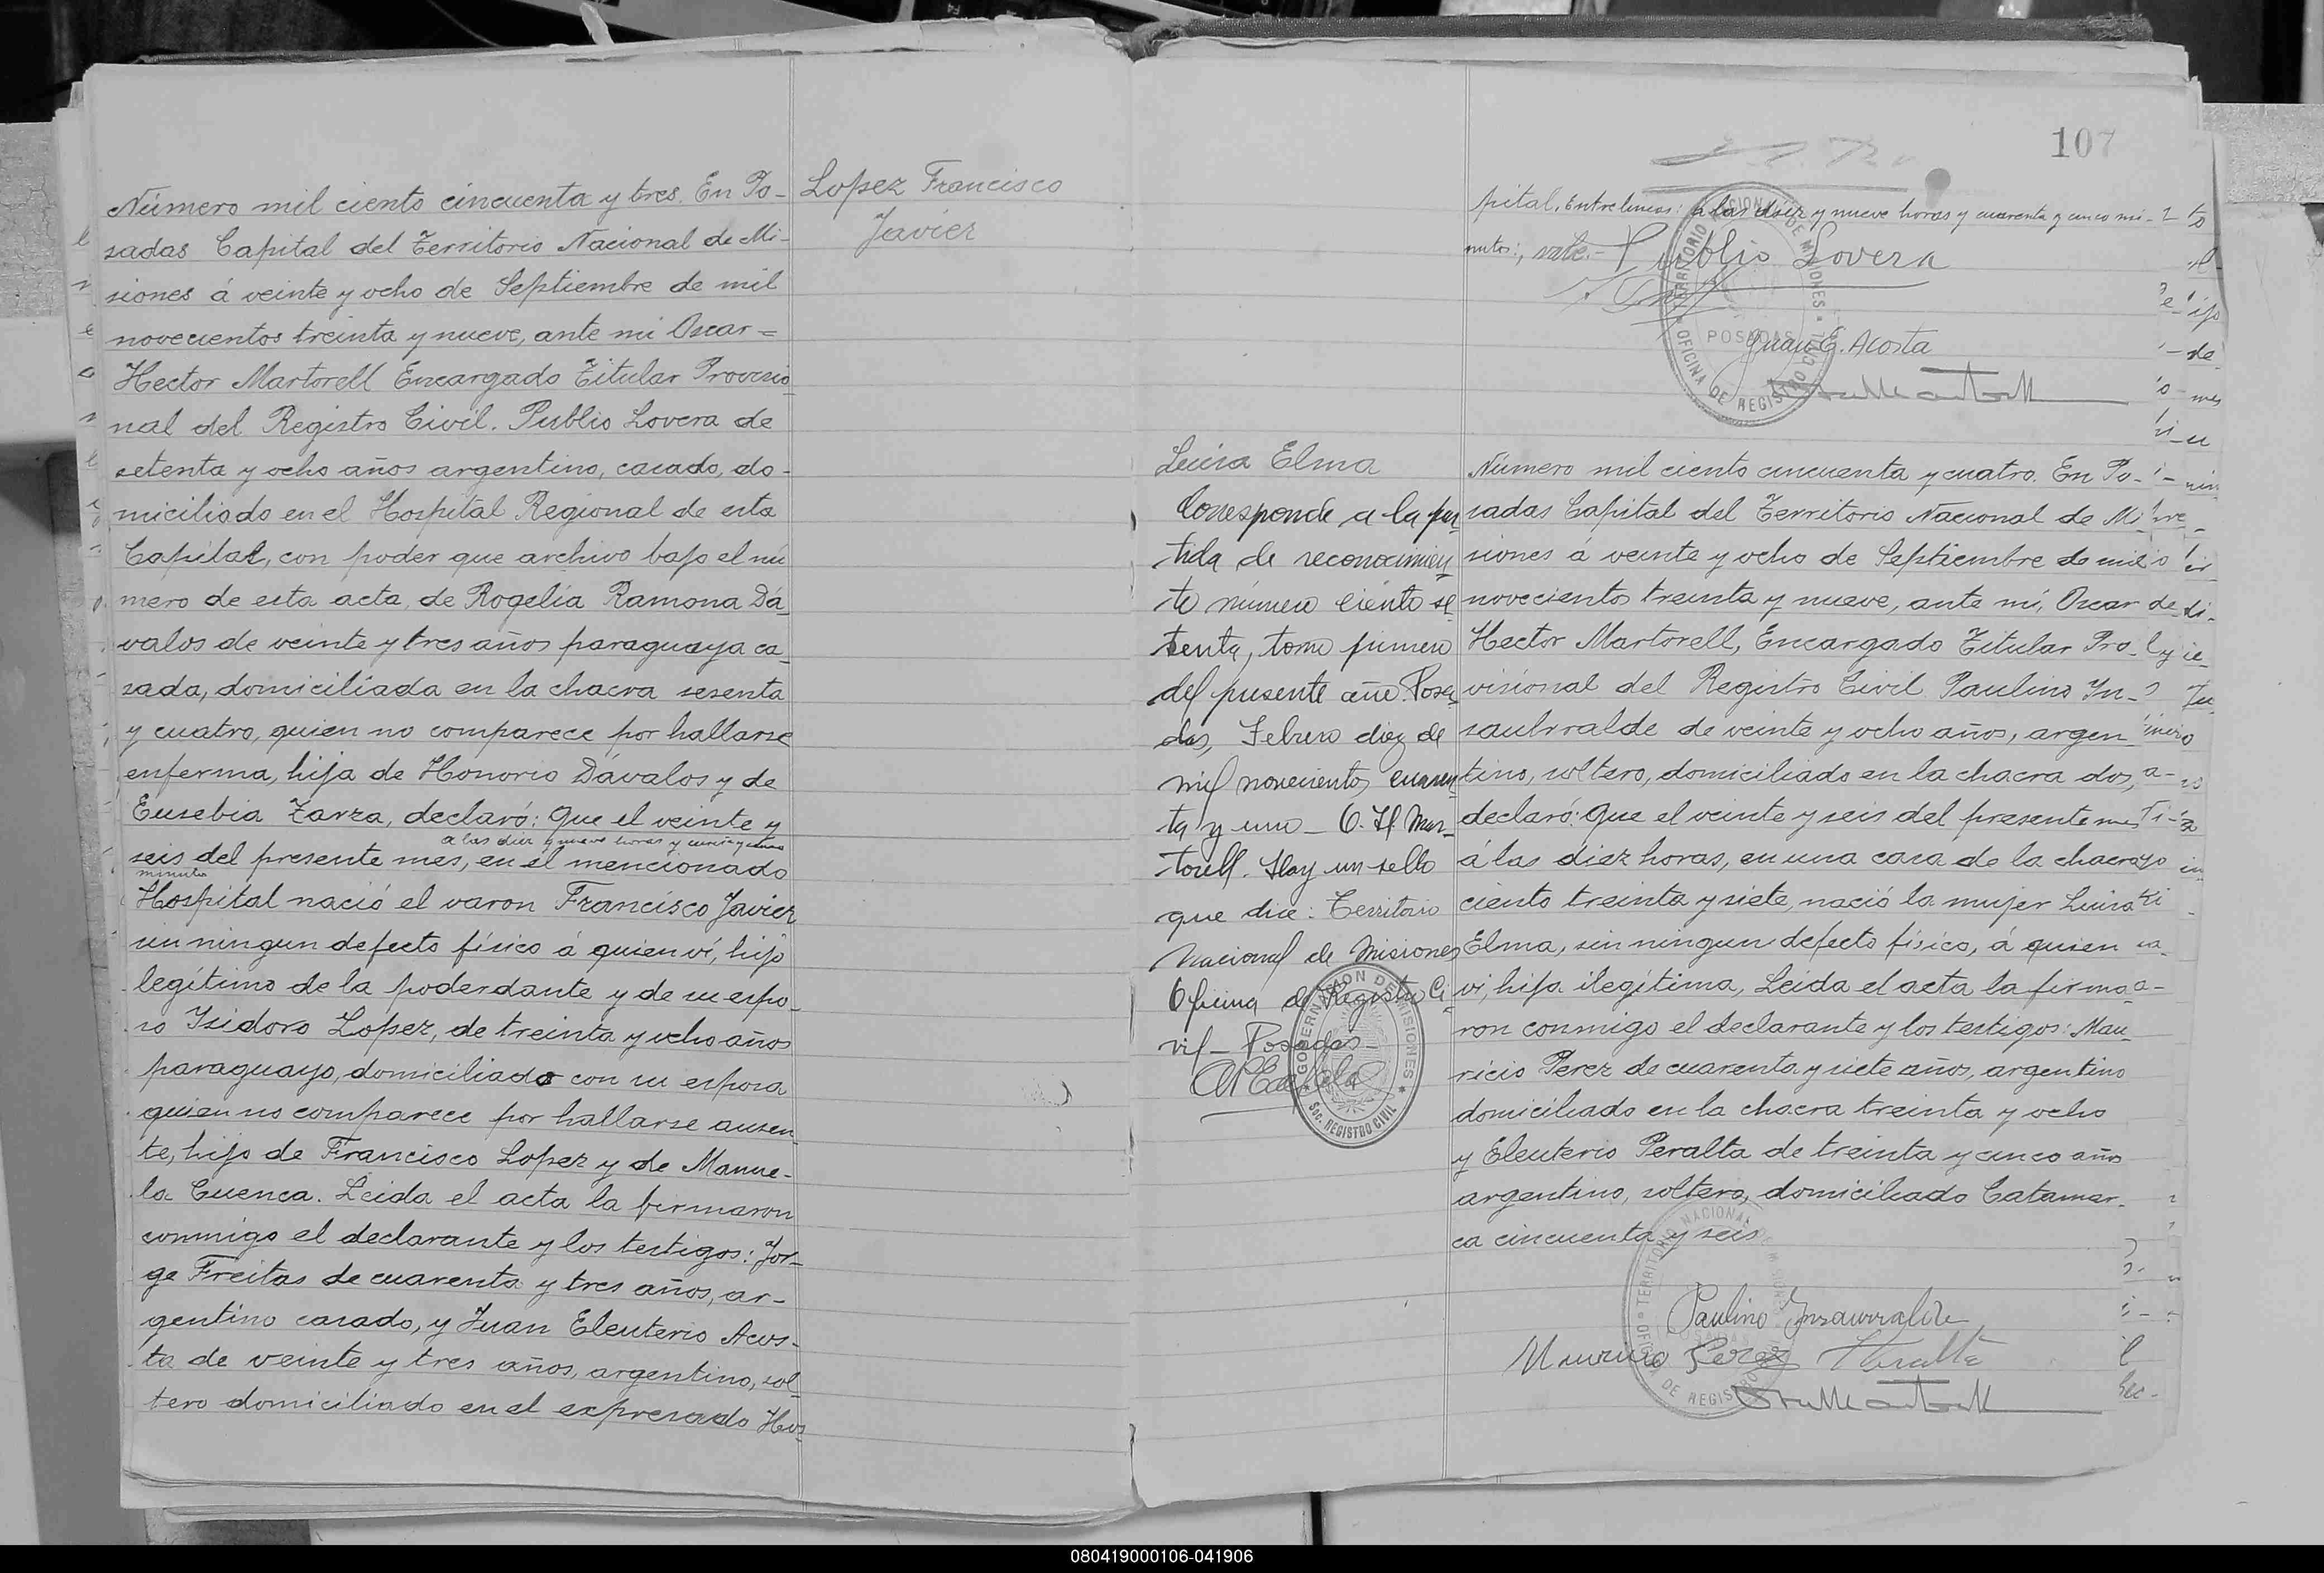 Lopez Francisco
Javier
Número mil ciento cincuenta y tres. En Po-
sadas Capital del Territorio Nacional de Mi-
siones á veinte y ocho de Septiembre de mil
novecientos treinta y nueve, ante mi Oscar =
Hector Martorell Encargado Titular Provisio
nal del Registro Civil. Publio Lovera de
setenta y ocho años argentino, casado, do-
miciliado en el Hospital Regional de esta
Capital, con poder que archivo bajo el nú
mero de esta acta, de Rogelia Ramona Dá
valos de veinte y tres años paraguaya ca
sada, domiciliada en la chacra sesenta
y cuatro, quien no comparece por hallarse
enferma, hija de Honorio Dávalos y de
Eusebia Zarza, declaró: Que el veinte y
a las diez y nueve horas y cuarenta y cinco
seis del presente mes, en el mencionado
minutos
Hospital nació el varon Francisco Javier
sin ningun defecto físico á quien ví, hijo
legítimo de la poderdante y de su espo-
so Isidoro Lopez, de treinta y ocho años
paraguayo, domiciliado con su esposa
quien no comparece por hallarse ausen
te, hijo de Francisco Lopez y de Manue-
la Cuenca. Leida el acta la firmaron
conmigo el declarante y los testigos: Jor-
ge Freitas de cuarenta y tres años, ar-
gentino casado, y Juan Eleuterio Acos-
ta de veinte y tres años, argentino, sol
tero domiciliado en el expresado Hos-
107
pital. Entrelineas: a las diez y nueve horas y cuarenta y cinco mi-
nutos:, vale.- Publio Lovera
Juan E. Acosta
TERRITORIO NACIONAL DE MISIONES
POSADAS
OFICINA DE REGISTRO CIVIL
Luisa Elma
Corresponde a la par
tida de reconocimien
to número ciento se
tenta, tomo primero
del presente año. Posa
das, Febrero diez de
mil novecientos cuaren
ta y uno - O. H. Mar-
torell. Hay un sello
que dice: Territorio
Nacional de Misiones
Oficina de Registro Ci
vil - Posadas
GOBERNACION DE MISIONES
Sec. REGISTRO CIVIL
Número mil ciento cincuenta y cuatro. En Po-
sadas Capital del Territorio Nacional de Mi
siones á veinte y ocho de Septiembre de mil
novecientos treinta y nueve, ante mí, Oscar
Hector Martorell, Encargado Titular Pro-
visional del Registro Civil Paulino In-
saubrralde de veinte y ocho años, argen
tino, soltero, domiciliado en la chacra dos,
declaró: Que el veinte y seis del presente mes
á las diez horas, en una casa de la chacra
ciento treinta y siete, nació la mujer Luisa
Elma, sin ningun defecto físico, á quien
vi, hija ilegítima, Leida el acta la firma
ron conmigo el declarante y los testigos: Mau
ricio Perez de cuarenta y siete años, argentino
domiciliado en la chacra treinta y ocho
y Eleuterio Peralta de treinta y cinco años
argentino, soltero, domiciliado Catamar-
ca cincuenta y seis
TERRITORIO NACIONAL DE MISIONES
OFICINA DE REGISTRO
Paulino Insaurralde
Mauricio Perez Peralta
080419000106-041906